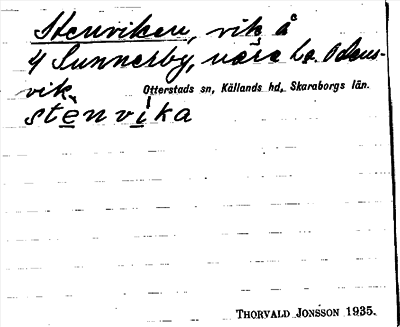 Stenviken, vik å
4 Sunnerby, nära L. Odens-
vik.
Otterstads sn, Källands hd, Skaraborgs län.
stenvika
THORVALD JONSSON 1935.